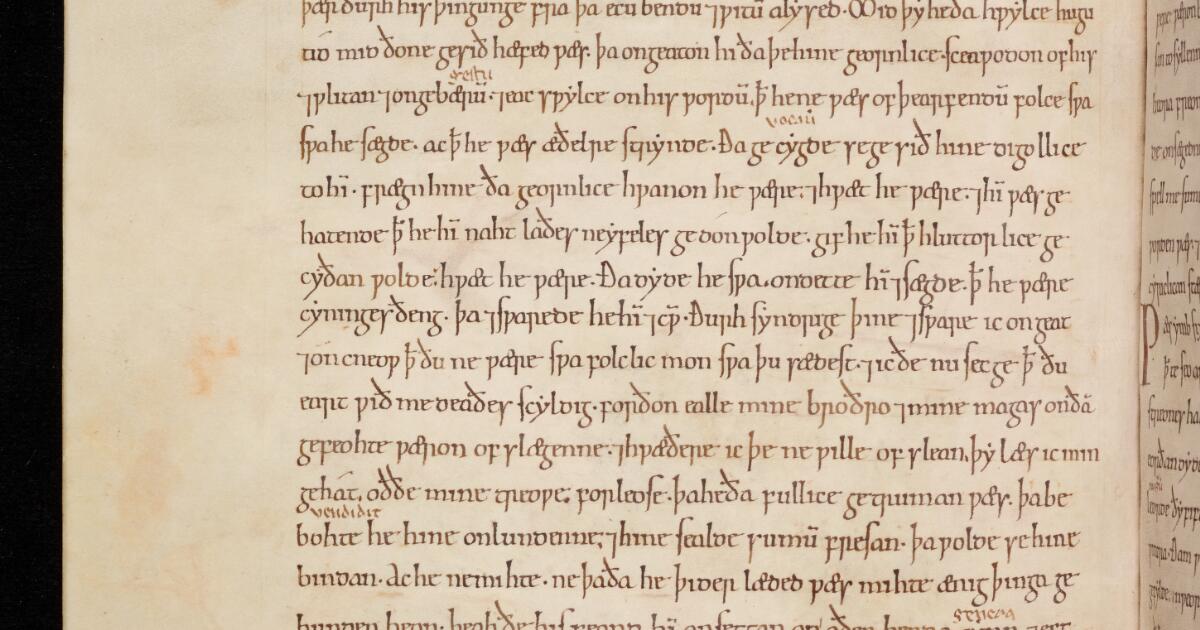 þær ðurh his þingunge fra þa ecū bendū ⁊ pitū alysed. Mid þy he ða hƿylce hugu
tid mid ðone gesið hæfed ƿæs. þa ongeaton hi ða þe hine geornlice sceaƿodon of his
gestu
⁊ƿlitan ⁊ ongebærū. ⁊ eac sƿylce on his ƿordū. ꝥ he ne ƿæs of þearfendū folce sƿa
vocavit
sƿa he sægde. ac ꝥ he ƿæs æðelre strynde. Ða gecygde se gesið hine digollice
to hī. frægn hine ða geornlice hƿanon he ƿære; ⁊ hƿæt he ƿære. ⁊ hī ƿæs ge
hatende ꝥ he hī naht laðes ne yfeles gedon ƿolde. gif he hī ꝥ hluttorlice ge
cyðan ƿolde; hƿæt he ƿære. Ða dyde he sƿa. ondette hī ⁊ sægde. ꝥ he ƿære
cyninges ðeng. þa ⁊sƿarede he hī ⁊ cƿ̄. Ðurh syndrige þine ⁊sƿare ic ongeat
⁊ oncneoƿ ꝥ ðu ne ƿære sƿa folclic mon sƿa þu sædest. ⁊ ic ðe nu secge ꝥ ðu
eart ƿið me deaðes scyldig. forðon ealle mine broðro ⁊ mine magas on ðā
gefeohte ƿæron ofslægenne. ⁊ hƿæðere ic þe ne ƿille ofslean. þy læs ic min
gehat. oððe mine treoƿe; forleose. þa he ða fullice getruman ƿæs. þa be
vendidit
bohte he hine on lundenne; ⁊ hine sealde sumū fresan. þa ƿolde se hine
bindan. Ac he ne mihte. ne þa ða he þider læded ƿæs mihte ænig þinga ge